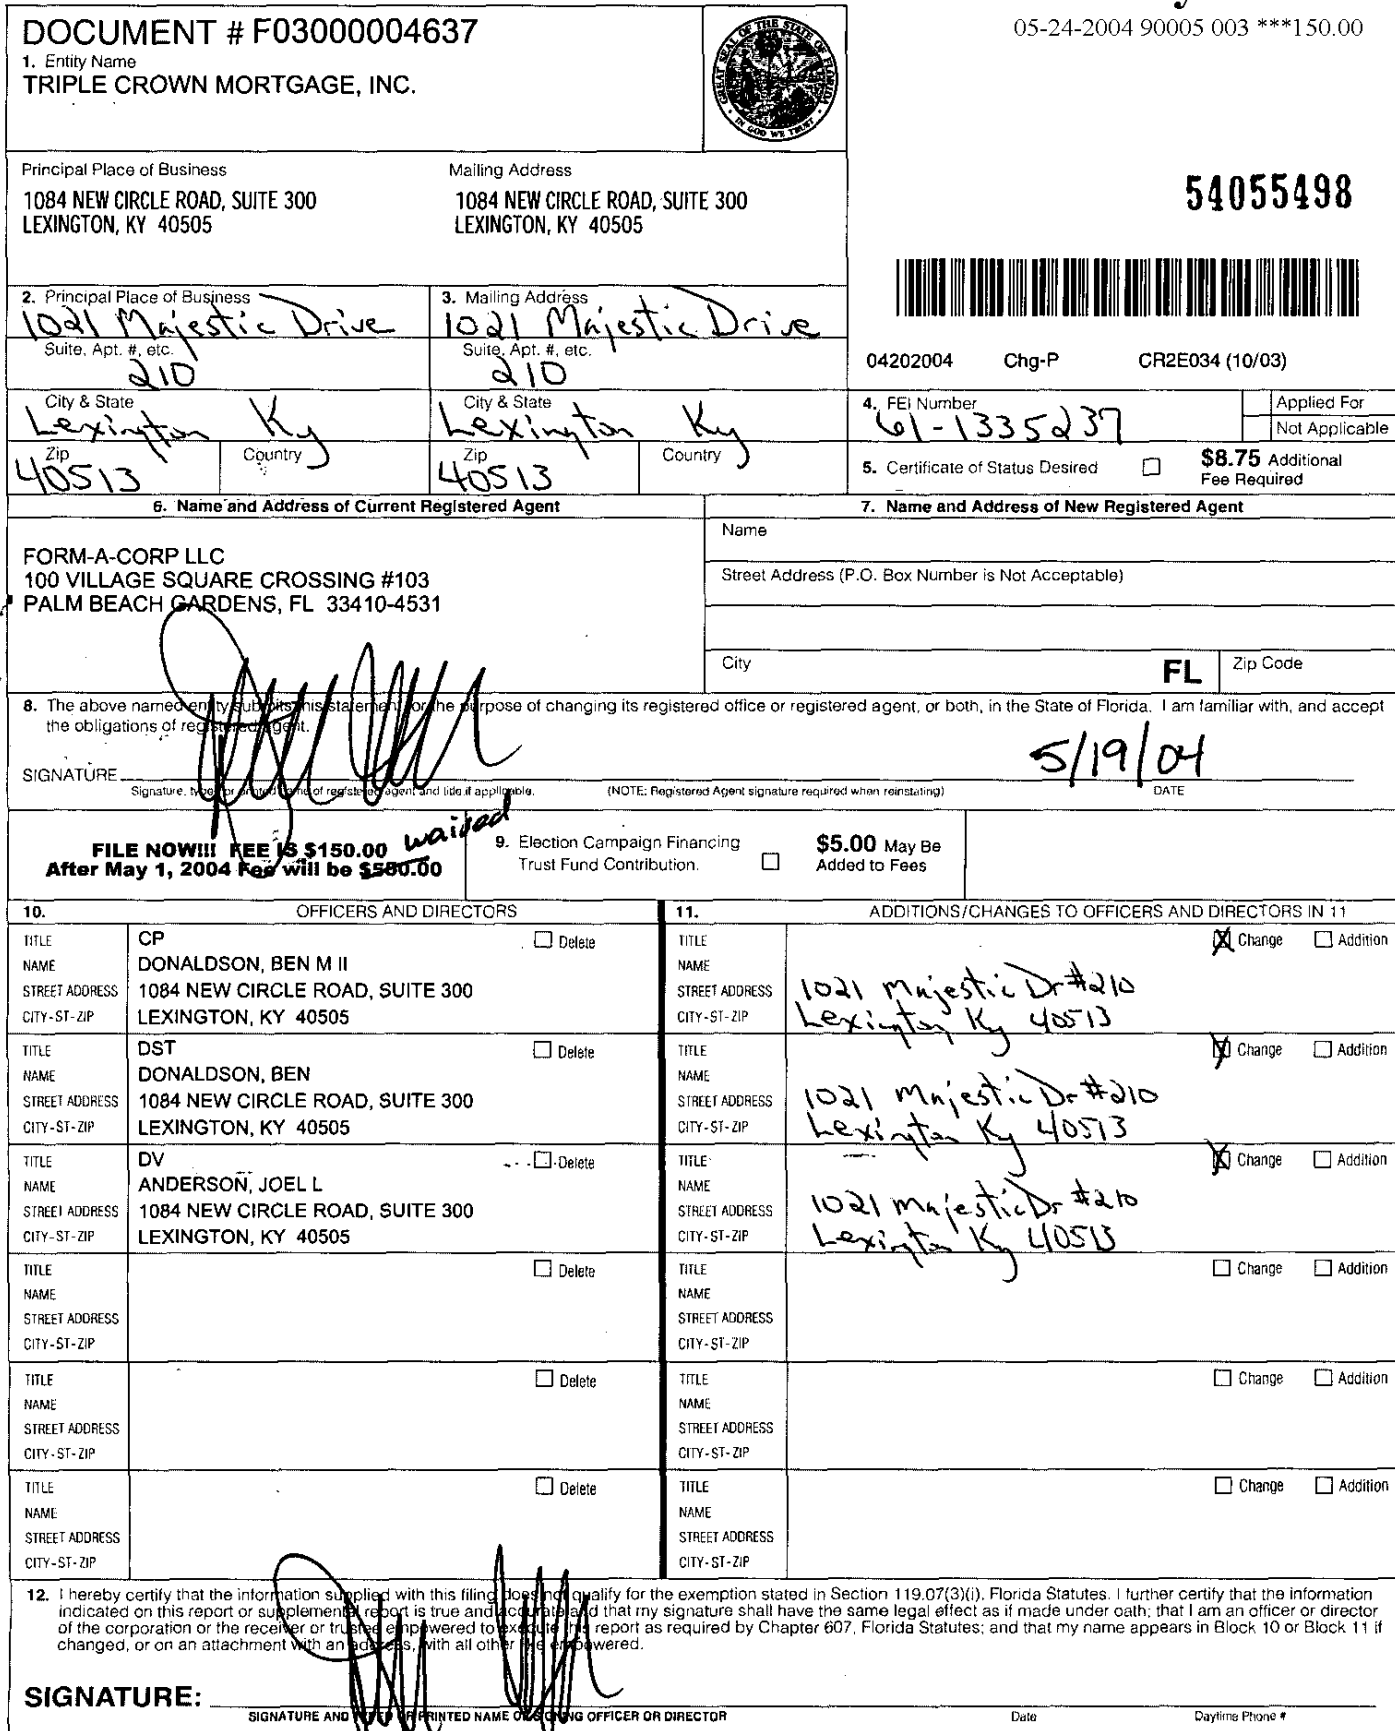 05-24-2004 90005 003 ***150.00
DOCUMENT # F03000004637
1. Entity Name
TRIPLE CROWN MORTGAGE, INC.
GREAT SEAL OF THE STATE OF FLORIDA
IN GOD WE TRUST
Principal Place of Business
1084 NEW CIRCLE ROAD, SUITE 300
LEXINGTON, KY 40505
Mailing Address
1084 NEW CIRCLE ROAD, SUITE 300
LEXINGTON, KY 40505
54055498
2. Principal Place of Business
1021 Majestic Drive
Suite, Apt. #, etc.
210
City & State
Lexington Ky
Zip
40513
Country
3. Mailing Address
1021 Majestic Drive
Suite, Apt. #, etc.
210
City & State
Lexington Ky
Zip
40513
Country
04202004 Chg-P CR2E034 (10/03)
4. FEI Number
61-1335237
Applied For
Not Applicable
5. Certificate of Status Desired
$8.75 Additional
Fee Required
6. Name and Address of Current Registered Agent
FORM-A-CORP LLC
100 VILLAGE SQUARE CROSSING #103
PALM BEACH GARDENS, FL 33410-4531
7. Name and Address of New Registered Agent
Name
Street Address (P.O. Box Number is Not Acceptable)
City
FL
Zip Code
8. The above named entity submits this statement for the purpose of changing its registered office or registered agent, or both, in the State of Florida. I am familiar with, and accept
the obligations of registered agent.
5/19/04
SIGNATURE
Signature, typed or printed name of registered agent and title if applicable.
(NOTE: Registered Agent signature required when reinstating)
DATE
waived
FILE NOW!!! FEE IS $150.00
After May 1, 2004 Fee will be $550.00
9. Election Campaign Financing
Trust Fund Contribution.
$5.00 May Be
Added to Fees
10. OFFICERS AND DIRECTORS
11. ADDITIONS/CHANGES TO OFFICERS AND DIRECTORS IN 11
TITLE CP Delete
NAME DONALDSON, BEN M II
STREET ADDRESS 1084 NEW CIRCLE ROAD, SUITE 300
CITY-ST-ZIP LEXINGTON, KY 40505
TITLE X Change Addition
NAME
STREET ADDRESS 1021 Majestic Dr #210
CITY-ST-ZIP Lexington Ky 40513
TITLE DST Delete
NAME DONALDSON, BEN
STREET ADDRESS 1084 NEW CIRCLE ROAD, SUITE 300
CITY-ST-ZIP LEXINGTON, KY 40505
TITLE X Change Addition
NAME
STREET ADDRESS 1021 Majestic Dr #210
CITY-ST-ZIP Lexington Ky 40513
TITLE DV Delete
NAME ANDERSON, JOEL L
STREET ADDRESS 1084 NEW CIRCLE ROAD, SUITE 300
CITY-ST-ZIP LEXINGTON, KY 40505
TITLE X Change Addition
NAME
STREET ADDRESS 1021 Majestic Dr #210
CITY-ST-ZIP Lexington Ky 40513
TITLE Delete
NAME
STREET ADDRESS
CITY-ST-ZIP
TITLE Change Addition
NAME
STREET ADDRESS
CITY-ST-ZIP
TITLE Delete
NAME
STREET ADDRESS
CITY-ST-ZIP
TITLE Change Addition
NAME
STREET ADDRESS
CITY-ST-ZIP
TITLE Delete
NAME
STREET ADDRESS
CITY-ST-ZIP
TITLE Change Addition
NAME
STREET ADDRESS
CITY-ST-ZIP
12. I hereby certify that the information supplied with this filing does not qualify for the exemption stated in Section 119.07(3)(i), Florida Statutes. I further certify that the information
indicated on this report or supplemental report is true and accurate and that my signature shall have the same legal effect as if made under oath; that I am an officer or director
of the corporation or the receiver or trustee empowered to execute this report as required by Chapter 607, Florida Statutes; and that my name appears in Block 10 or Block 11 if
changed, or on an attachment with an address, with all other like empowered.
SIGNATURE:
SIGNATURE AND TYPED OR PRINTED NAME OF SIGNING OFFICER OR DIRECTOR
Date
Daytime Phone #